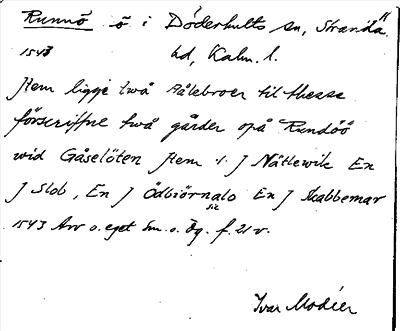 Runnö ö i Döderhults sn, Stranda
1543 hd, Kalm. l.
Item ligge twå ålebroer til thesse
förscriffne twå gårder opå Rundöö
wid Gåselöten Item ·/· J Nåtlewik En
J Slob, En J Ödbiörnalo En J skabbemar
sic
1543 Arv o. eget Sm. o. Ög. f. 21 v.
Ivar Modéer